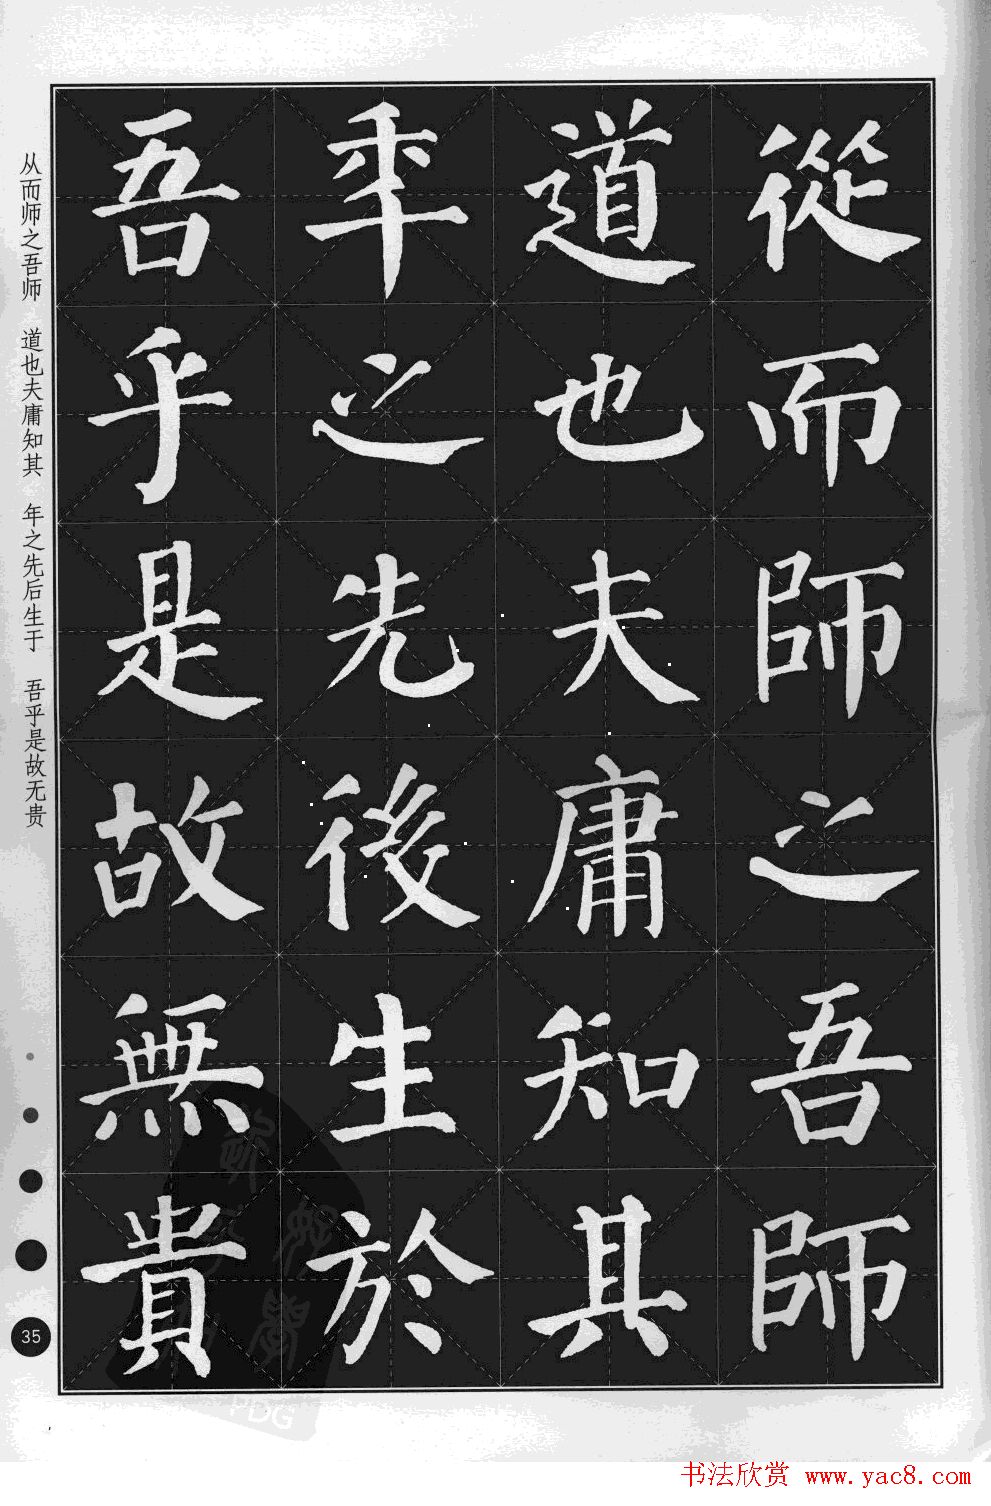 從而師之吾師
道也夫庸知其
年之先後生於
吾乎是故無貴
从而师之吾师 道也夫庸知其 年之先后生于 吾乎是故无贵
35
PDG
书法欣赏 www.yac8.com